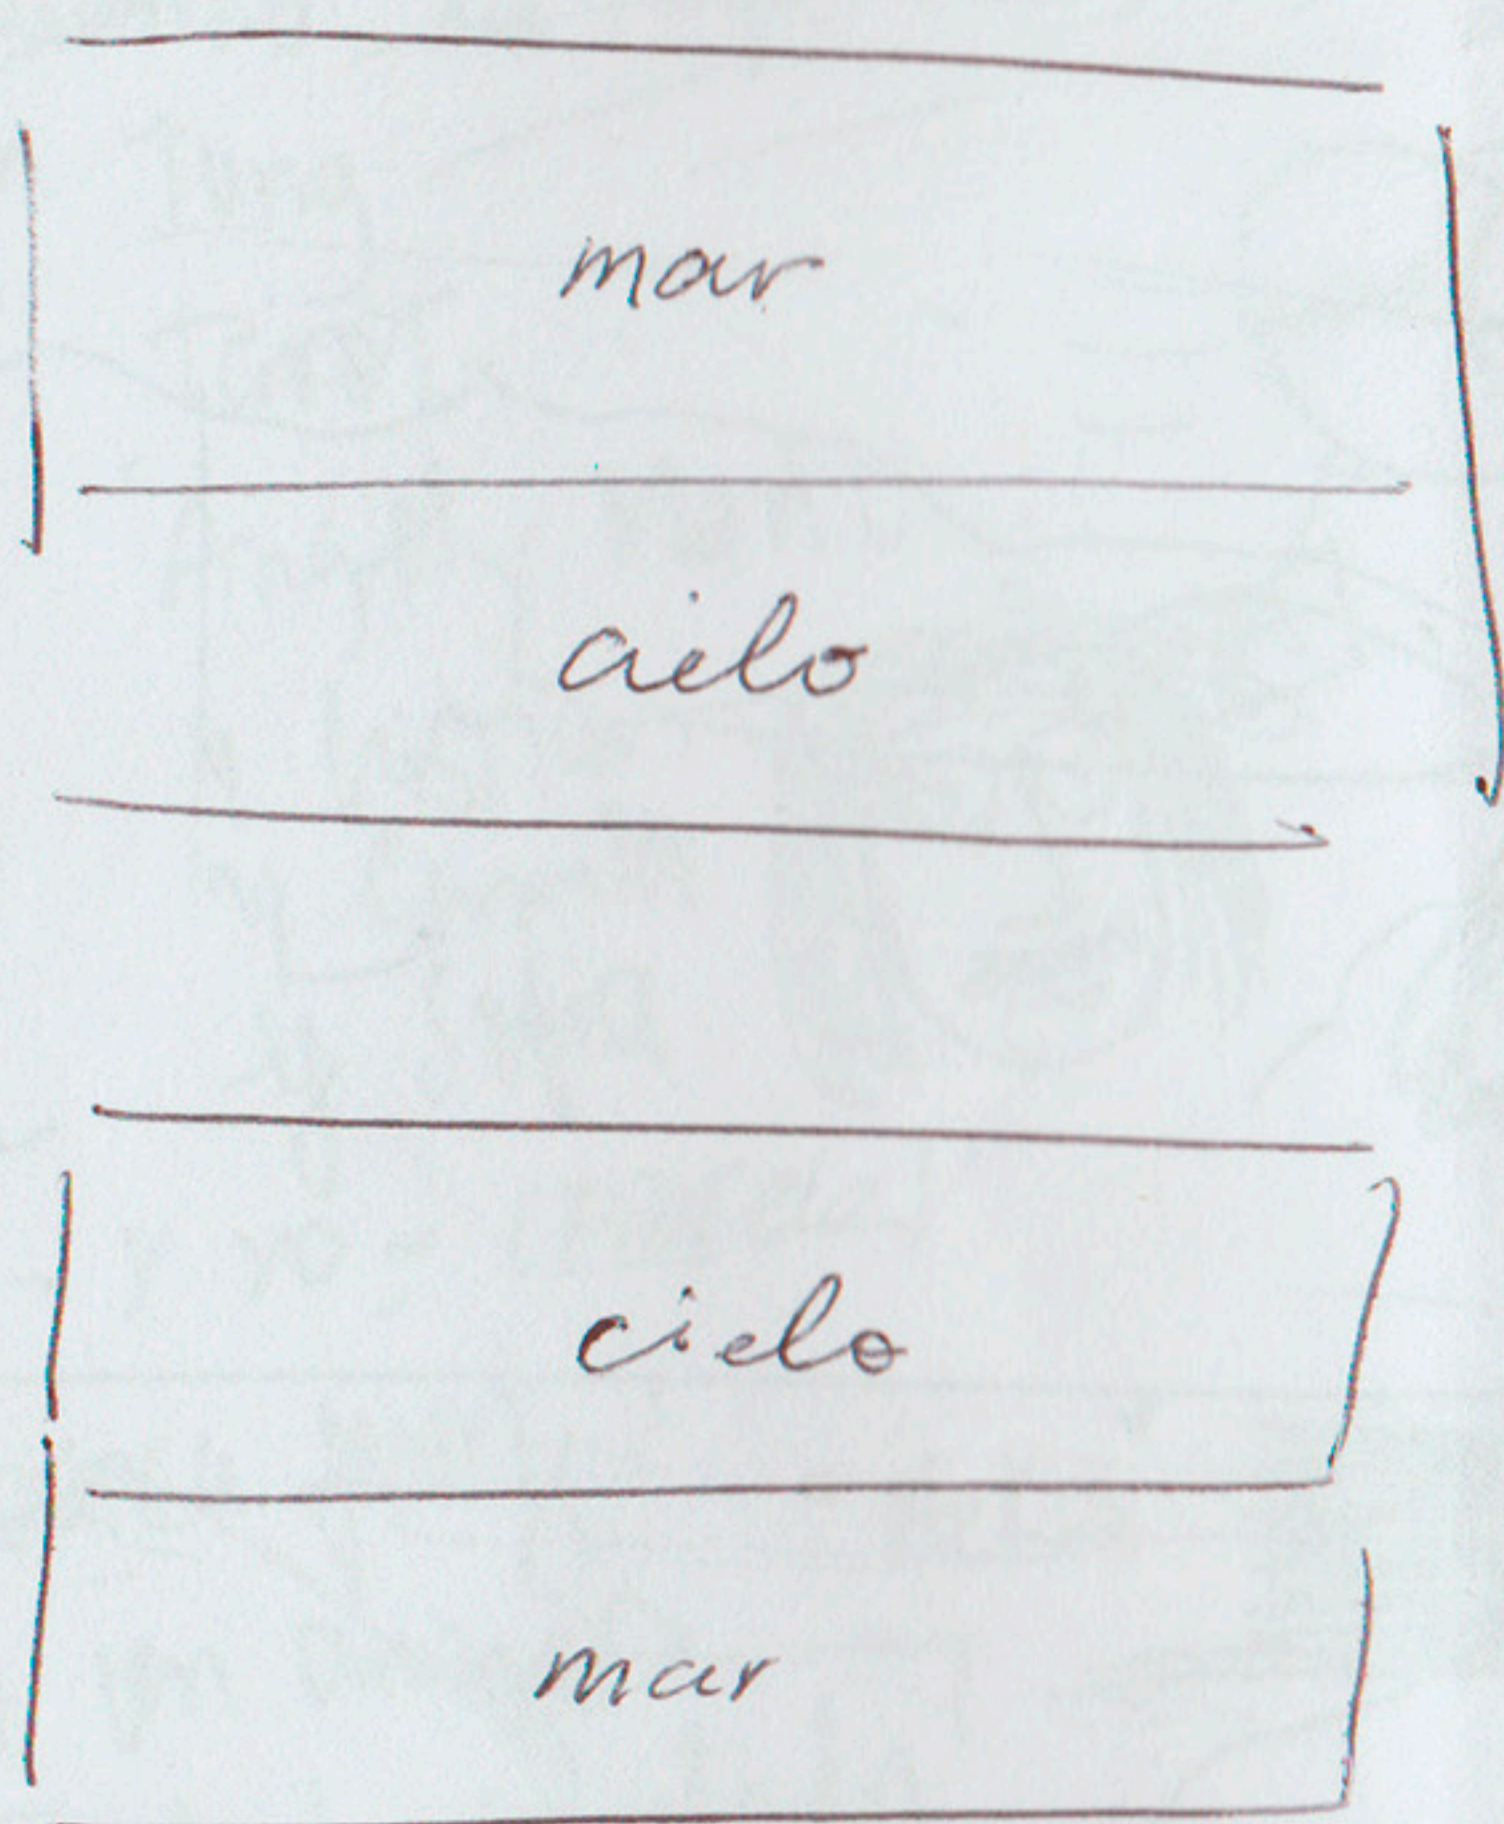 mar
cielo
cielo
mar